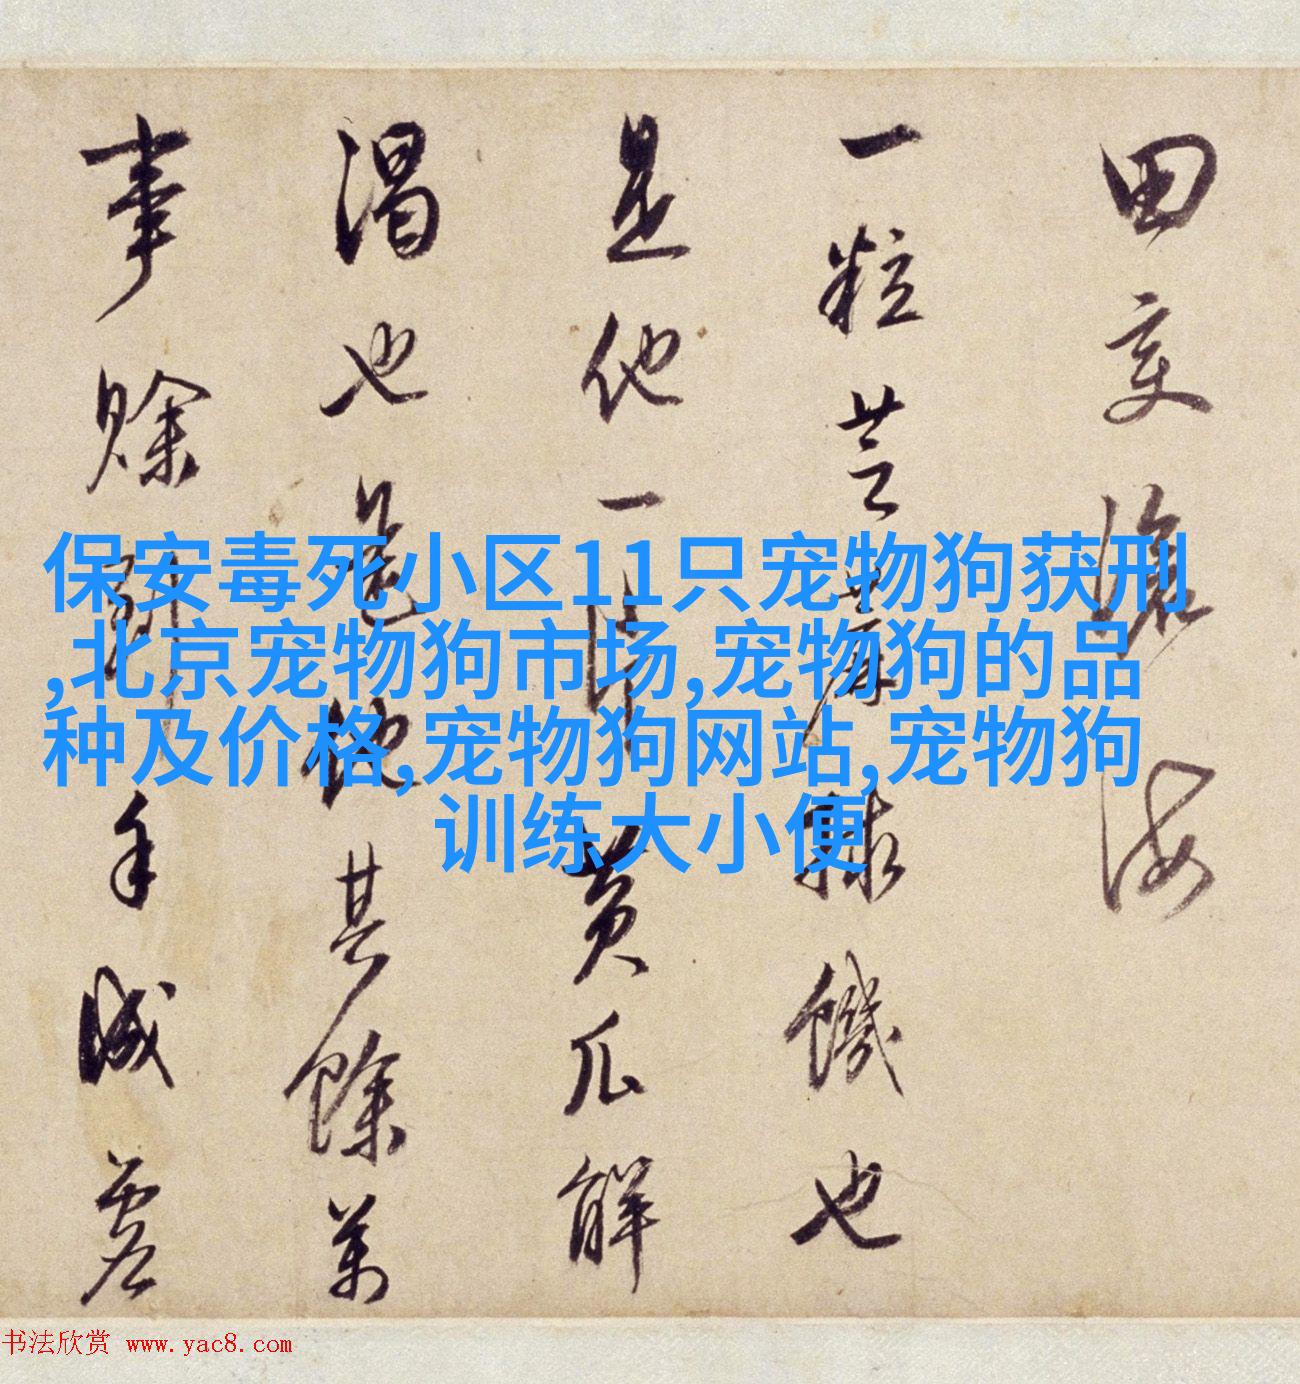 保安毒死小区11只宠物狗获刑
,北京宠物狗市场,宠物狗的品
种及价格,宠物狗网站,宠物狗
训练大小便
田变滄海
一粒芝麻救饑也
是他一條黄瓜解
渴也是他其餘萬
事賒手
书法欣赏 www.yac8.com